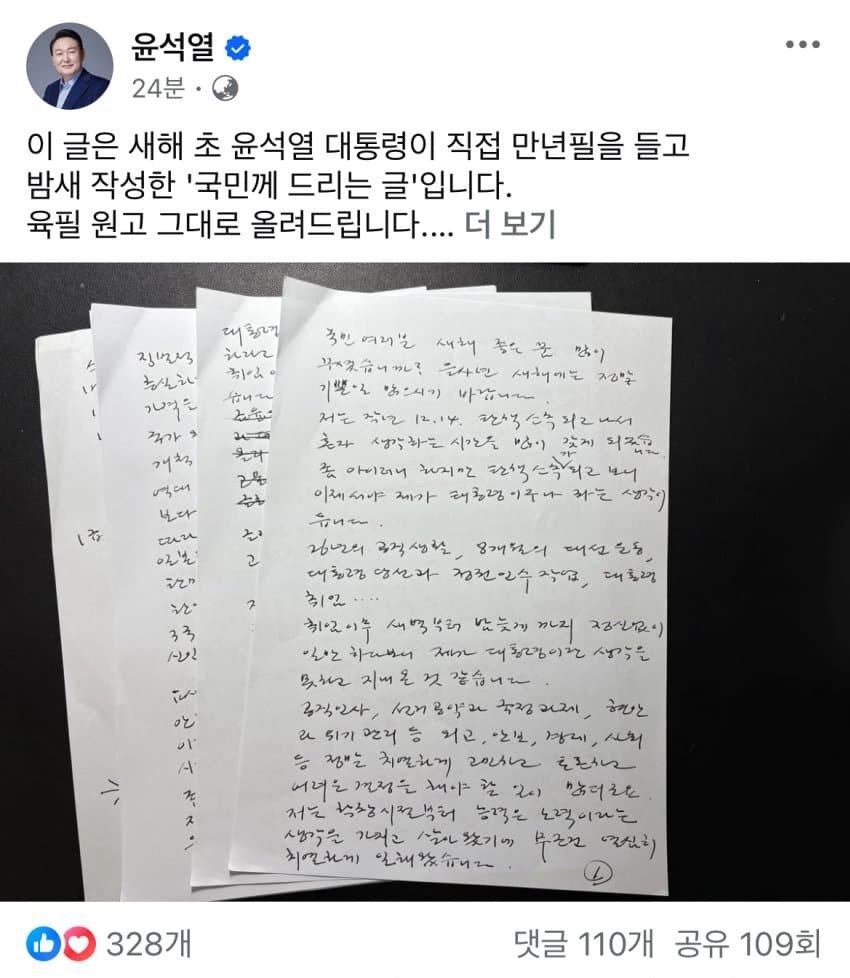 윤석열
24분 ·
이 글은 새해 초 윤석열 대통령이 직접 만년필을 들고
밤새 작성한 '국민께 드리는 글'입니다.
육필 원고 그대로 올려드립니다.... 더 보기
국민 여러분 새해 좋은 꿈 많이
꾸셨습니까? 을사년 새해에는 정말
기쁜일 많으시기 바랍니다.
저는 작년 12.14. 탄핵소추 되고 나서
혼자 생각하는 시간을 많이 갖게 되었습니다.
좀 아이러니 하지만 탄핵소추가 되고 보니
이제서야 제가 대통령이구나 하는 생각이
듭니다.
26년의 공직생활, 8개월의 대선 운동,
대통령 당선과 정권 인수 작업, 대통령
취임....
취임이후 새벽부터 밤늦게 까지 정신없이
일만 하다보니 제가 대통령이란 생각을
못하고 지내온 것 같습니다.
공직인사, 선거공약과 국정과제, 현안
과 위기 관리 등 외교, 안보, 경제, 사회
등 정말 치열하게 고민하고 토론하고
어려운 결정을 해야 할 일이 많더군요.
저는 학창시절부터 능력은 노력이라는
생각을 가지고 살아 왔기에 무조건 열심히
치열하게 일해왔습니다.
1
대통령
하라고
취임
습니다
직면
충실
가격은
국가
개척
역대
보다
따라
일본
328개
댓글 110개 공유 109회